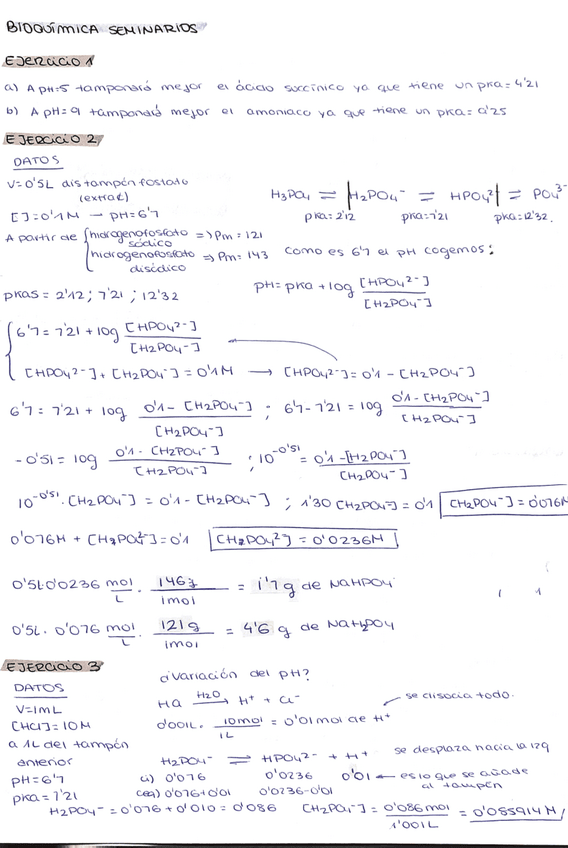 BIOQUÍMICA SEMINARIOS
EJERCICIO 1
a) A pH=5 tamponará mejor el ácido succínico ya que tiene un pka= 4'21
b) A pH=9 tamponará mejor el amoniaco ya que tiene un pka= 9'25
EJERCICIO 2
DATOS
V=0'5L distampón fosfato
(extrae)
[ ]=0'1M → pH=6'7
H3PO4 ⇌ H2PO4⁻ ⇌ HPO4²⁻ ⇌ PO4³⁻
pka=2'12 pka=7'21 pka=12'32.
A partir de { hidrogenofosfato sódico => Pm=121
hidrogenofosfato disódico => Pm=143
como es 6'7 el pH cogemos:
pkas = 2'12; 7'21; 12'32
pH=pka+log [HPO4²⁻]/[H2PO4⁻]
6'7=7'21+log [HPO4²⁻]/[H2PO4⁻]
[HPO4²⁻]+[H2PO4⁻]=0'1M → [HPO4²⁻]=0'1-[H2PO4⁻]
6'7=7'21+log 0'1-[H2PO4⁻]/[H2PO4⁻] ; 6'7-7'21=log 0'1-[H2PO4⁻]/[H2PO4⁻]
-0'51=log 0'1-[H2PO4⁻]/[H2PO4⁻] ; 10^-0'51=0'1-[H2PO4⁻]/[H2PO4⁻]
10^-0'51·[H2PO4⁻]=0'1-[H2PO4⁻] ; 1'30[H2PO4⁻]=0'1 [H2PO4⁻]=0'076M
0'076M+[H2PO4²⁻]=0'1 [H2PO4²⁻]=0'0236M
0'5L·0'0236 mol/L · 146g/1mol = 1'7g de NaHPO4
0'5L·0'076 mol/L · 121g/1mol = 4'6g de NaH2PO4
EJERCICIO 3
DATOS
V=1mL
[HCl]=10M
a 1L del tampón
anterior
pH=6'7
pka=7'21
¿variación del pH?
HCl H2O → H⁺ + Cl⁻ se disocia todo.
0'001L · 10mol/1L = 0'01 mol de H⁺
H2PO4⁻ ⇌ HPO4²⁻ + H⁺ se desplaza hacia la izq
i) 0'076 0'0236 0'01 ← es lo que se añade
al tampón
ceq) 0'076+0'01 0'0236-0'01
H2PO4⁻=0'076+0'010=0'086 [H2PO4⁻]=0'086mol/1'001L=0'085914M